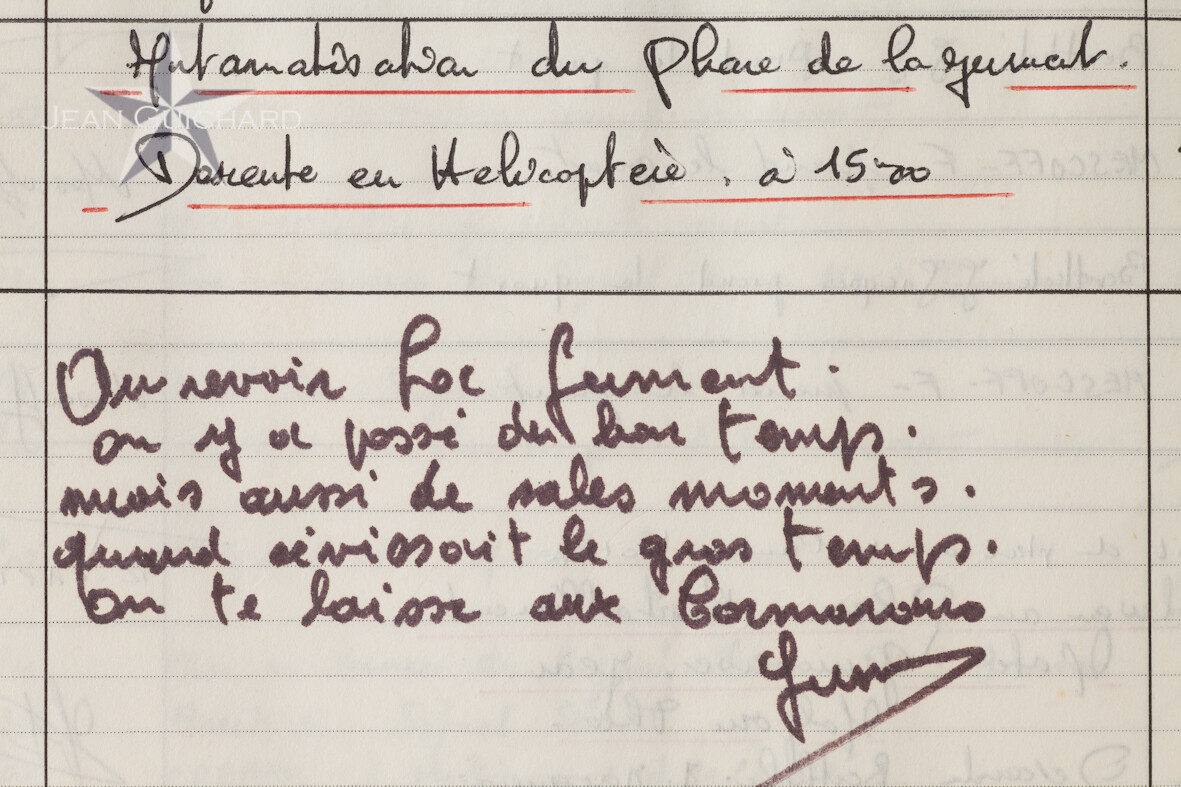 Automatisation du Phare de la Jument.
JEAN GUICHARD
Descente en Helicoptère. à 15-00
Au revoir Loc Jument.
on y a passé du bon temps.
mais aussi de sales moments.
quand sévissait le gros temps.
on te laisse aux Cormorans